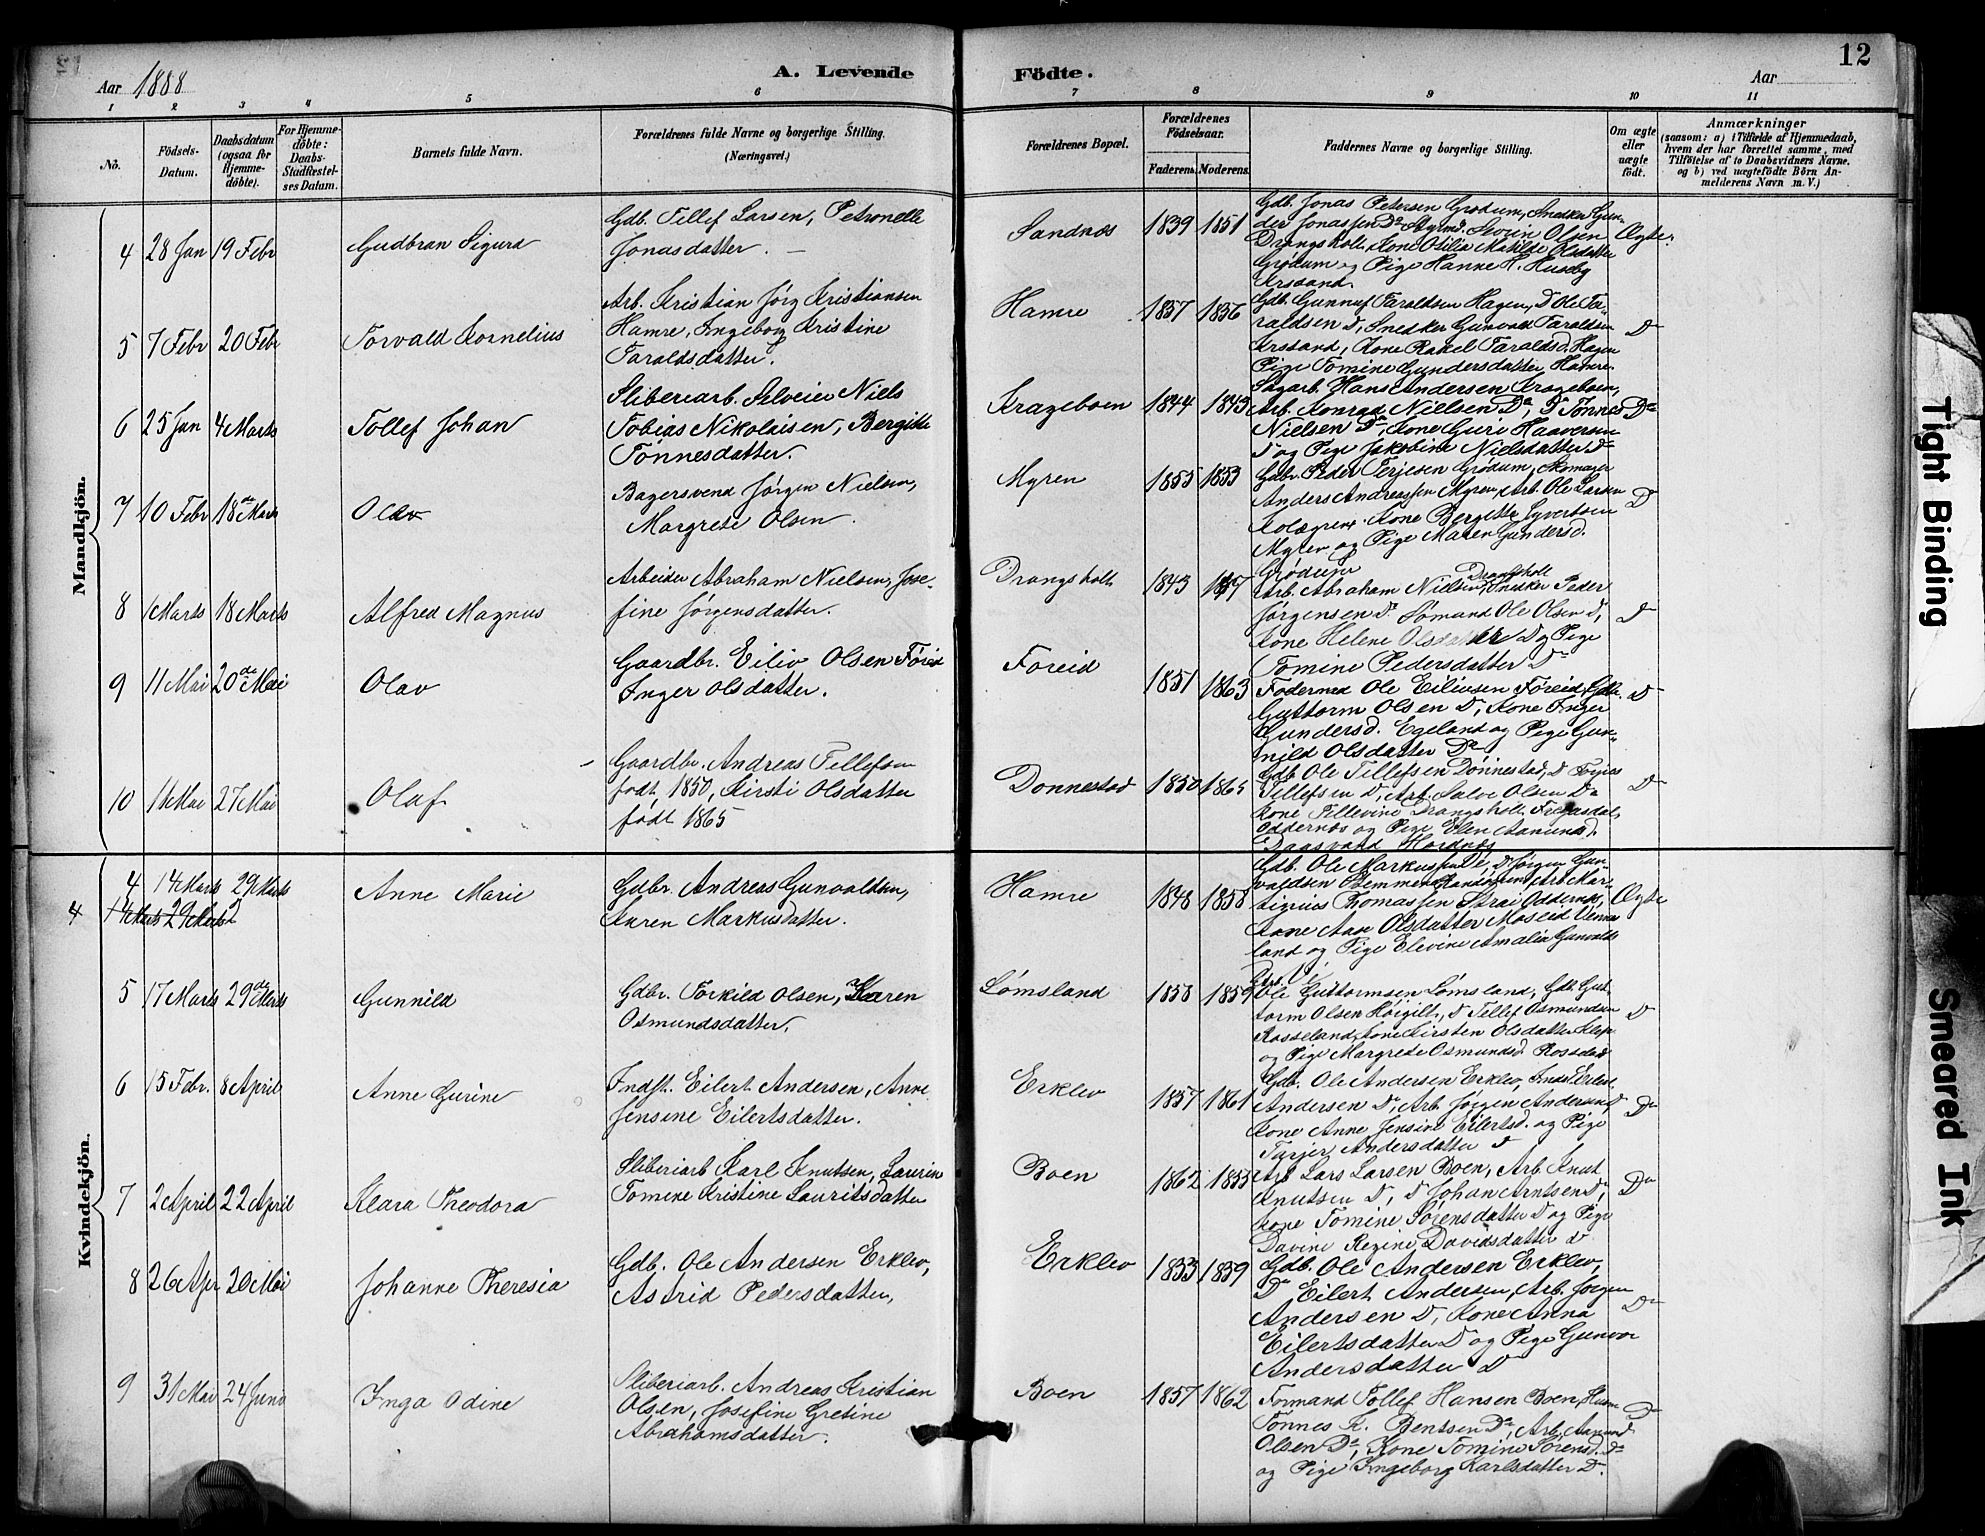 12
Aar 1888
A. Levende Födte.
Aar
1 2 3 4 5 6 7 8 9 10 11
No.
Födsels-Datum.
Daabsdatum (ogsaa for Hjemmedöbte).
For Hjemmedöbte: Daabs-Stadfæstelses Datum.
Barnets fulde Navn.
Forældrenes fulde Navne og borgerlige Stilling. (Næringsvei.)
Forældrenes Bopæl.
Forældrenes Födselsaar.
Faderens. Moderens.
Faddernes Navne og borgerlige Stilling.
Om ægte eller uægte födt.
Anmærkninger
(saasom: a) i Tilfælde af Hjemmedaab, hvem der har forrettet samme, med Tilföielse af to Daabsvidners Navne, og b) ved uægtefödte Börn Anmelderens Navn m. V.)
Mandkjön.
4 28 Jan 19 Febr Gudbran Sigurd
Gdb. Tellef Larsen, Petronelle
Jonasdatter. —
Sandnæs 1839 1851
Gdb. Jonas Petersen Grødum, Snedker Gun-
der Jonassen Do Sømd. Svein Olsen
Drangsholt, Kone Otilia Matilde Olsdatter
Grødum og Pige Hanne H. Huseby
Krsand.
Ægte.
5 7 Febr 20 Febr Torvald Kornelius
Arb. Kristian Jörg Kristiansen
Hamre, Ingeborg Kristine
Taraldsdatter.
Hamre 1857 1856
Gdb. Gunnuf Taraldsen Hagen, Do Ole Ta-
raldsen Do, Snedker Gunvald Taraldsen
Krsand, Kone Rakel Taraldsd. Hagen
Pige Tomine Gundersdatter Hamre.
Do
6 25 Jan 4 Marts Tollef Johan
Sliberiarb. Selveier Niels
Tobias Nikolaisen, Bergitte
Tönnesdatter.
Krageboen 1844 1843
Sagarb. Hans Andersen Krageboen,
Arb. Konrad Nielsen Do, Do Tönnes
Nielsen Do, Kone Guri Haaversen
Do og Pige Jakobine Nielsdatter Do
Do
7 10 Febr 18de Marts Olav
Bagersvend Jörgen Nielsen,
Margrete Olsen.
Myren 1855 1853
Gdbr. Peder Terjesen Grødum, Skomager
Anders Andreassen Myren, Arb. Ole Larsen
Kone Bergitte
Myren og Pige Maren Gundersd.
Grødum
Do
8 1 Marts 18 Marts Alfred Magnus
Arbeider Abraham Nielsen, Jose-
fine Jörgensdatter.
Drangsholt 1843
Arb. Abraham Nielsen Drangsholt, Snedker Peder
Jörgensen Do Sömand Ole Olsen Do,
Kone Helene Olsdatter Do og Pige
Tomine Pedersdatter Do
Do
9 11 Mai 20de Mai Olav
Gaardbr. Eiliv Olsen Föreid
Inger Olsdatter.
Foreid 1851 1863
Födermd Ole Eilivsen Föreid, Gdb.
Guttorm Olsen Do, Kone Inger
Gundersd. Egeland og Pige Gun-
nild Olsdatter Do
Do
10 1 Mai 27 Mai Olaf
Gaardbr. Andreas Tellefsen
født 1850, Kirsti Olsdatter
født 1865
Dønnestad 1850 1865
Gdb Ole Tellefsen Dönnestad, Do Terjes
Tellefsen Do, Arb. Salve Olsen Do
Kone Tellevine Drangsholt,
Oddernæs og Pige Elen Aamunds
Daasvand Hordnæs
Do
Kvindekjön.
4 14 Marts 29 Marts Anne Marie
4 14 Marts 29 Marts
Gdbr. Andreas Gunvaldsen,
Karen Markusdatter.
Hamre 1848 1858
Gdb. Ole Markussen Do, Do Jörgen Gun-
valdsen Stemmen Randösund, Arb Mar-
tinius Thomassen Strai Oddernæs,
Kone Olsdatter Moseid Vennes-
land og Pige Elevine Amalia Gunvalds
Ægte
5 17 Marts 29de Marts Gunnild
Gdbr. Torkild Olsen, Karen
Osmundsdatter.
Lömsland 1858 1859
Ole Guttormsen Lömsland, Gdb. Gut-
torm Olsen Höigilt, Do Tellef Osmundsen
Rosseland, Kone Kirsten Olsdatter
og Pige Margrete Osmundsd. Rosseland
Do
6 15 Febr. 8 April Anne Gurine
Indst. Eilert Andersen, Anne
Jensine Eilertsdatter.
Erklev 1857 1861
Gdb. Ole Andersen Erklev, Indst Eilert
Andersen Do, Arb. Jörgen Andersen Do
Kone Anne Jensine Eilertsd. og Pige
Tarjer Andersdatter Do
Do
7 2 April 22 April Klara Theodora
Sliberiarb Karl Knutsen, Laurin
Tomine Kristine Lauritsdatter
Boen 1862 1855
Arb Lars Larsen Boen, Arb Knut
Knutsen Do, Do Johan Arntsen Do,
Kone Tomine Sörensdatter Do og Pige
Davine Regine Davidsdatter Do
Do
8 26 Apr 20 Mai Johanne Theresia
Gdb. Ole Andersen Erklev,
Astrid Pedersdatter,
Erklev 1833 1839
Gdb. Ole Andersen Erklev,
Do Eilert Andersen, Arb. Jörgen
Andersen Do, Kone Anna
Eilertsdatter Do og Pige Gunvor
Andersdatter Do
Do
9 31 Mai 24 Juni Inga Odine
Sliberiarb. Andreas Kristian
Olsen, Josefine Gretine
Abrahamsdatter.
Boen 1857 1862
Formand Tollef Hansen Boen,
Tönnes K. Bentsen Do, Arb. Aamund
Olsen Do, Kone Tomine Sörensd. Do
og Pige Ingeborg Karlsdatter Do.
Do
Tight Binding
Smeared Ink